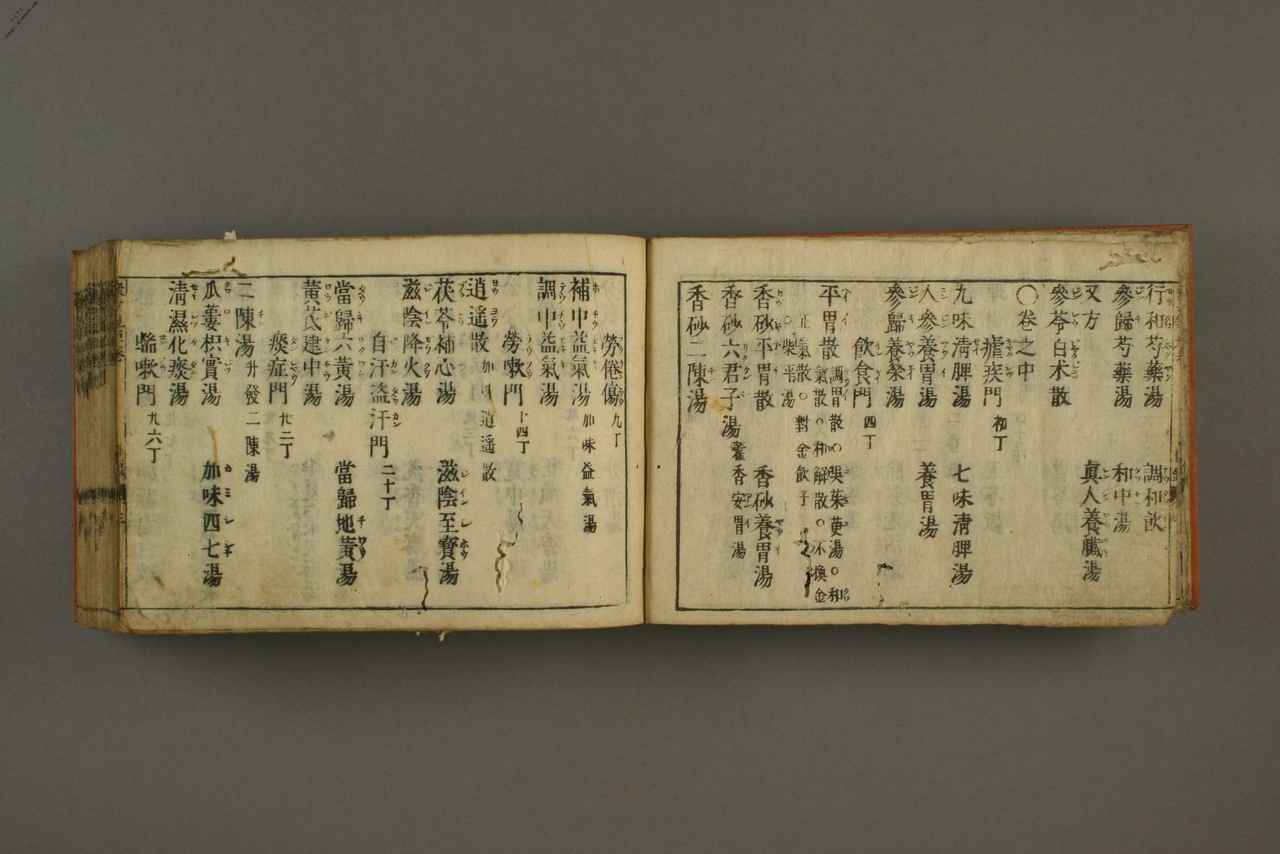 行和芍藥湯 調和飲
參歸芍藥湯 和中湯
又方 真人養臟湯
參苓白朮散
〇卷之中
瘧疾門 初丁
九味淸脾湯 七味淸脾湯
人參養胃湯 養胃湯
參歸養榮湯
飲食門 四丁
平胃散 調胃散〇吳茱萸湯〇和氣散〇和解散〇不換金正氣散〇對金飲子〇柴平湯
香砂平胃散 香砂養胃湯
香砂六君子湯 藿香安胃湯
香砂二陳湯
勞倦傷 九丁
補中益氣湯 加味益氣湯
調中益氣湯
勞嗽門 十四丁
逍遙散 加味逍遙散
茯苓補心湯 滋陰至寶湯
滋陰降火湯
自汗盜汗門 二十丁
當歸六黃湯 當歸地黃湯
黃芪建中湯
痰症門 廿二丁
二陳湯 升發二陳湯
瓜蔞枳實湯 加味四七湯
淸濕化痰湯
欬嗽門 九六丁